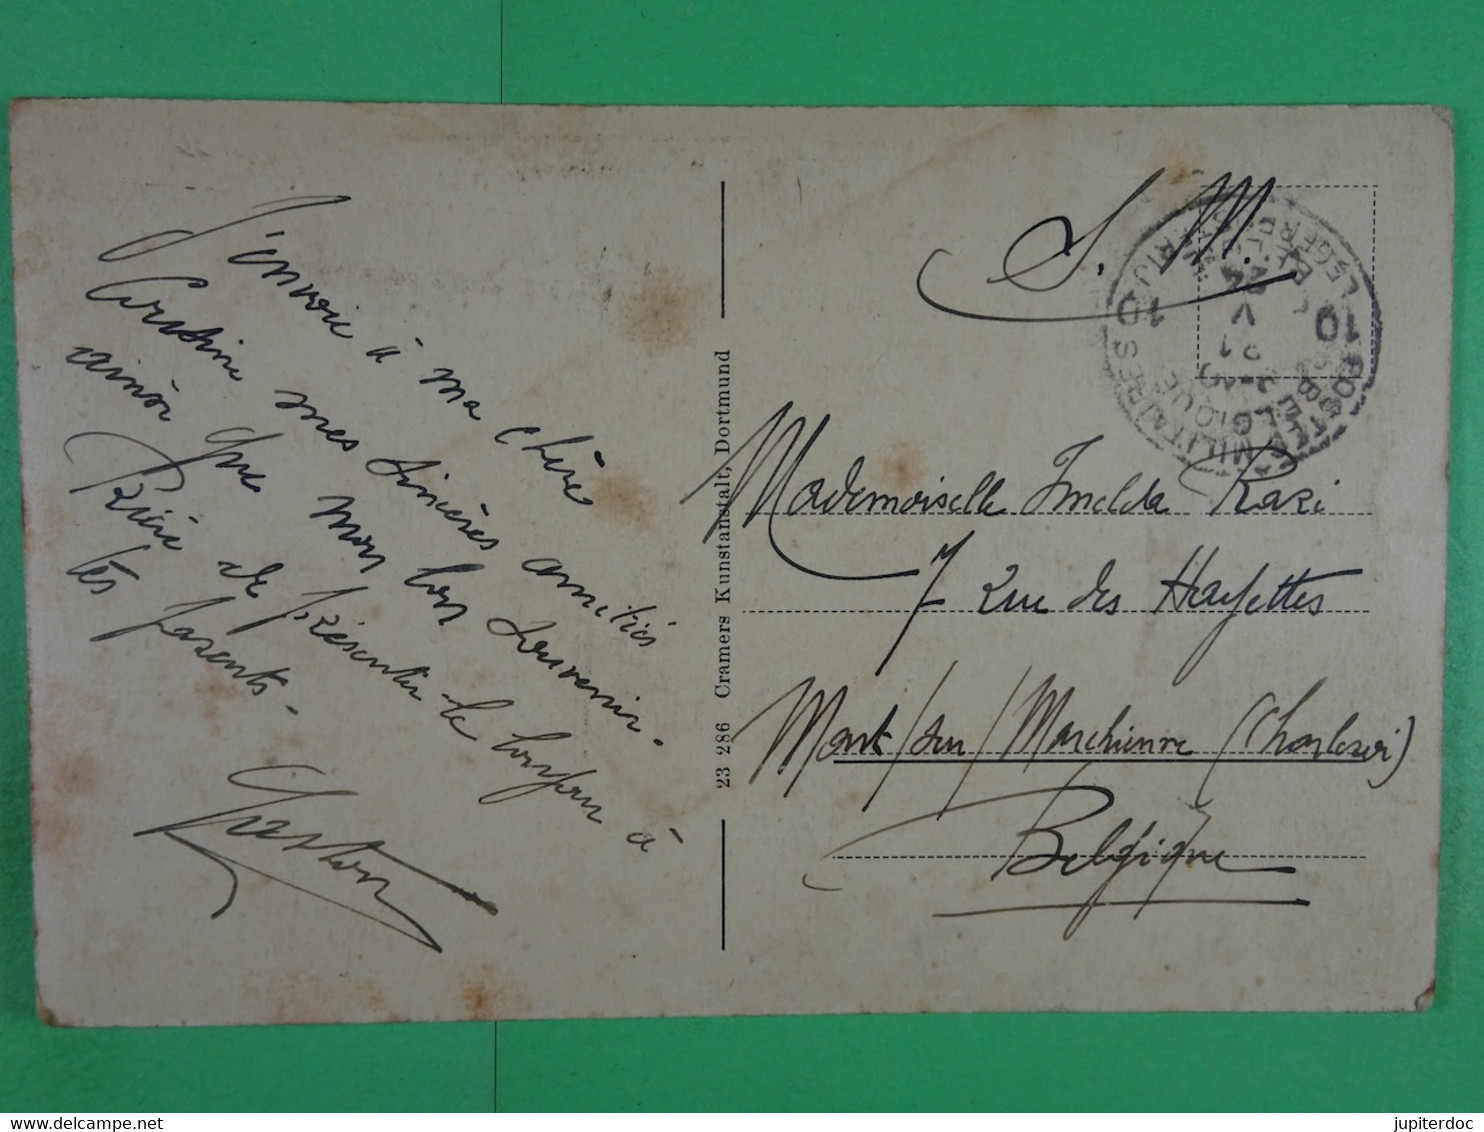 J'envoie à ma chère
Cousine mes sincères amitiés
ainsi que mon bon souvenir.
Prière de présenter le bonjour à
tes parents.
Gaston
23 286 Cramers Kunstanstalt, Dortmund
S. M.
POSTES MILITAIRES
BELGIQUE
10 10
V
21
LEGERPOSTERIJ
Mademoiselle Imelda Rari
7 Rue des Hayettes
Mont/sur/Marchienne (Charleroi)
Belgique
www.delcampe.net
jupiterdoc